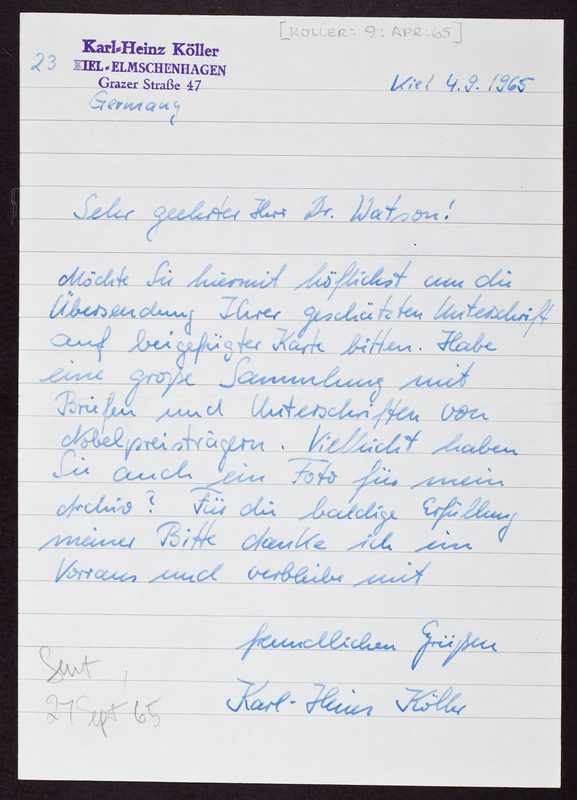 [KOLLER = 9 : APR : 65]
Karl-Heinz Köller
23 KIEL-ELMSCHENHAGEN
Grazer Straße 47
Germany
Kiel 4.9.1965
Sehr geehrter Herr Dr. Watson!
Möchte Sie hiermit höflichst um die
Übersendung Ihrer geschätzten Unterschrift
auf beigefügter Karte bitten. Habe
eine große Sammlung mit
Briefen und Unterschriften von
Nobelpreisträgern. Vielleicht haben
Sie auch ein Foto für mein
Archiv? Für die baldige Erfüllung
meiner Bitte danke ich im
Vorraus und verbleibe mit
freundlichen Grüßen
Karl-Heinz Köller
Sent
27 Sept 65